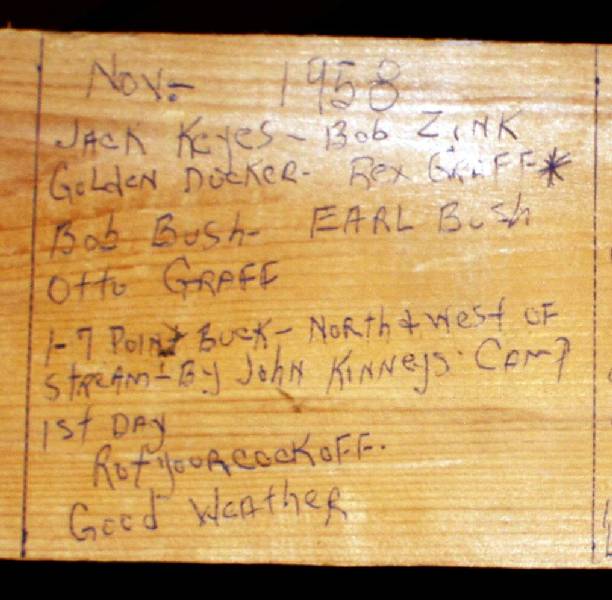 Nov:- 1958
JACK Keyes - Bob ZINK
GoLdeN DUCKeR- Rex GRAFF*
Bob BUSh- EARL BUSh
Otto GRAFF
1-7 POINT BUCK - NORth & West OF
StREAM - By JohN KINNeys' CAMP
1st DAy
Rot your cock oFF.
Good WeAtheR